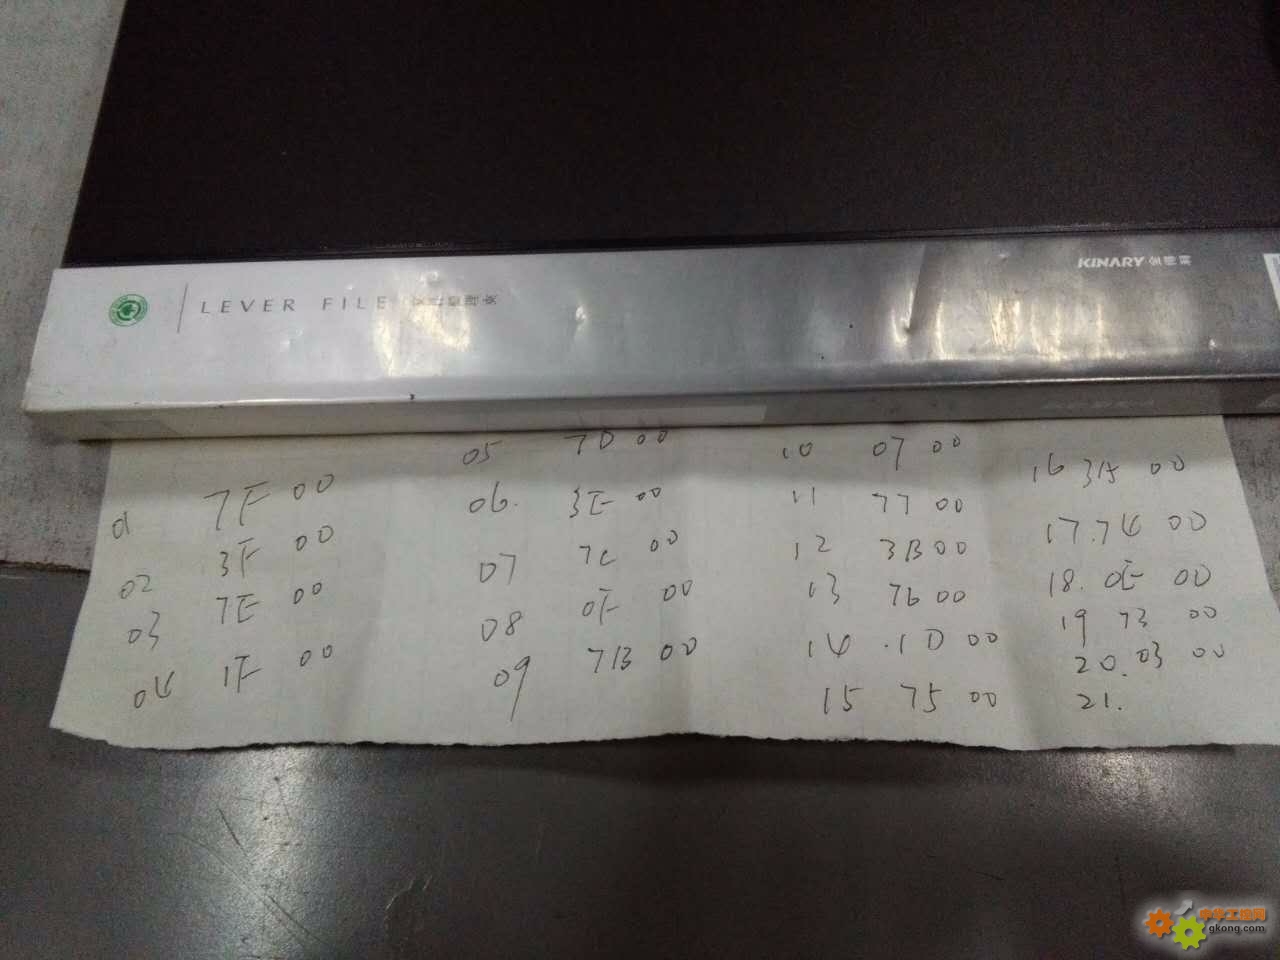 LEVER FILE
KINARY
01 7F 00
02 3F 00
03 7E 00
04 1F 00
05 7D 00
06. 3E 00
07 7C 00
08 0F 00
09 7B 00
10 07 00
11 77 00
12 3B 00
13 76 00
14 .1D 00
15 75 00
16 3A 00
17. 74 00
18. 0E 00
19 73 00
20. 03 00
21.
中华工控网
gkong.com